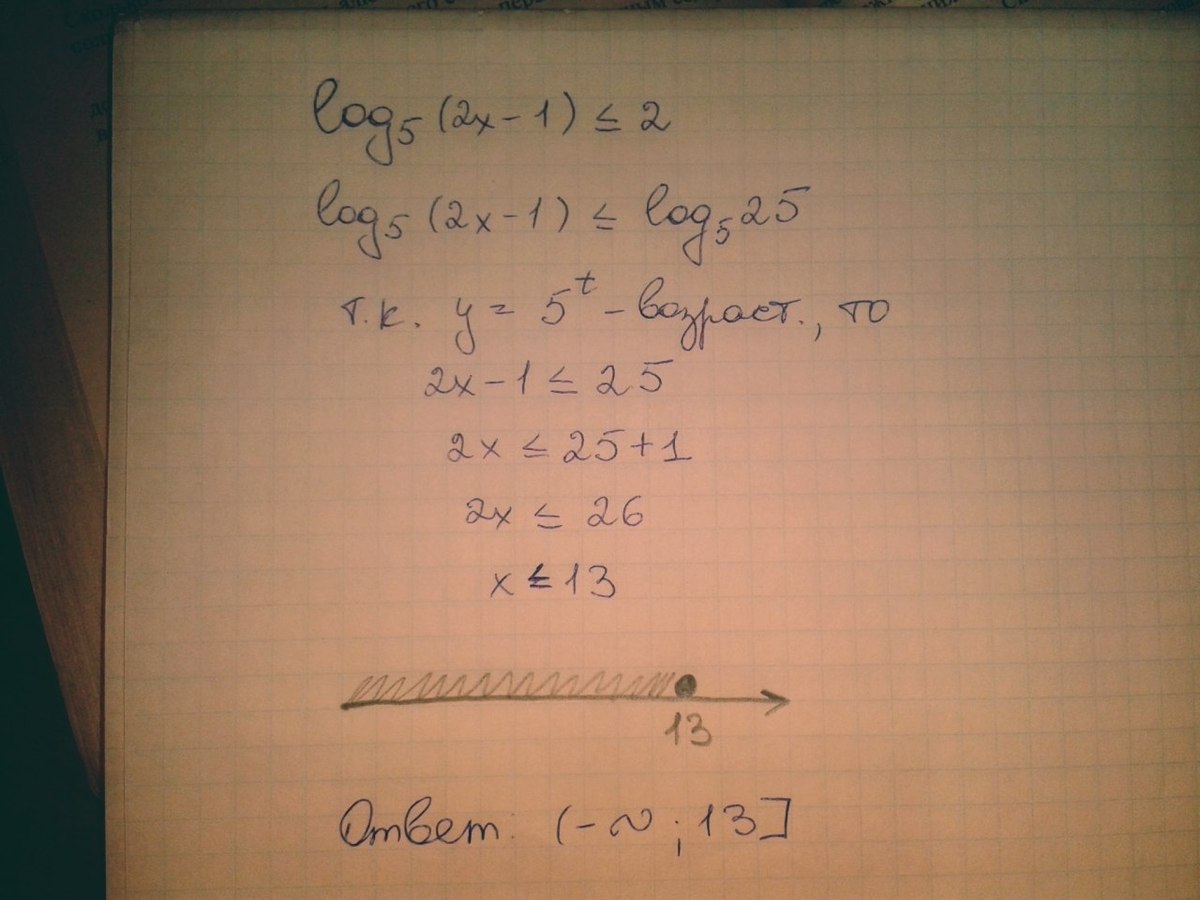 log₅(2x-1) ≤ 2
log₅(2x-1) ≤ log₅25
т.к. y = 5ᵗ - возраст., то
2x-1 ≤ 25
2x ≤ 25+1
2x ≤ 26
x ≤ 13
13
Ответ: (-∞; 13]